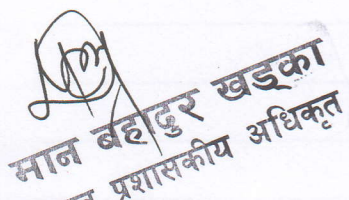 मान बहादुर खड्का
प्रशासकीय अधिकृत